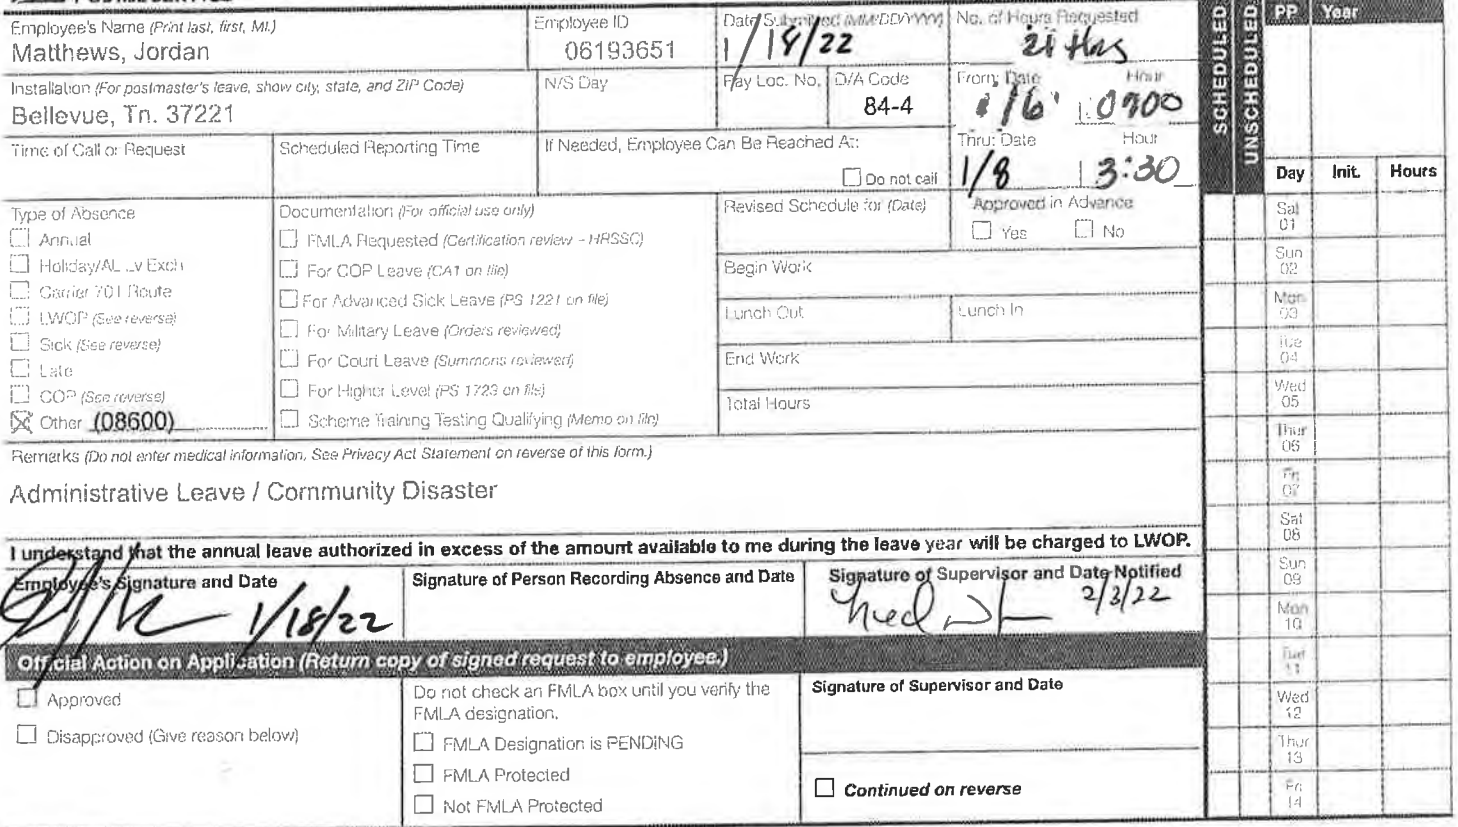 Employee's Name (Print last, first, MI.)
Matthews, Jordan
Employee ID
06193651
Date Submitted (MM/DD/YYYY)
1/18/22
No. of Hours Requested
21 Hrs
Installation (For postmaster's leave, show city, state, and ZIP Code)
Bellevue, Tn. 37221
N/S Day
Pay Loc. No.
D/A Code
84-4
From: Date Hour
1/6 0700
Time of Call or Request
Scheduled Reporting Time
If Needed, Employee Can Be Reached At:
Do not call
Thru: Date Hour
1/8 3:30
Type of Absence
Annual
Holiday/AL Lv Exch
Carrier 701 Route
LWOP (See reverse)
Sick (See reverse)
Late
COP (See reverse)
Other (08600)
Documentation (For official use only)
FMLA Requested (Certification review - HRSSC)
For COP Leave (CA1 on file)
For Advanced Sick Leave (PS 1221 on file)
For Military Leave (Orders reviewed)
For Court Leave (Summons reviewed)
For Higher Level (PS 1723 on file)
Scheme Training Testing Qualifying (Memo on file)
Revised Schedule for (Date)
Approved in Advance
Yes No
Begin Work
Lunch Out
Lunch In
End Work
Total Hours
Remarks (Do not enter medical information, See Privacy Act Statement on reverse of this form.)
Administrative Leave / Community Disaster
I understand that the annual leave authorized in excess of the amount available to me during the leave year will be charged to LWOP.
Employee's Signature and Date
1/18/22
Signature of Person Recording Absence and Date
Signature of Supervisor and Date Notified
2/3/22
Official Action on Application (Return copy of signed request to employee.)
Approved
Disapproved (Give reason below)
Do not check an FMLA box until you verify the
FMLA designation.
FMLA Designation is PENDING
FMLA Protected
Not FMLA Protected
Signature of Supervisor and Date
Continued on reverse
SCHEDULED
UNSCHEDULED
PP Year
Day Init. Hours
Sat
01
Sun
02
Mon
03
Tue
04
Wed
05
Thur
06
Fri
07
Sat
08
Sun
09
Mon
10
Tue
11
Wed
12
Thur
13
Fri
14